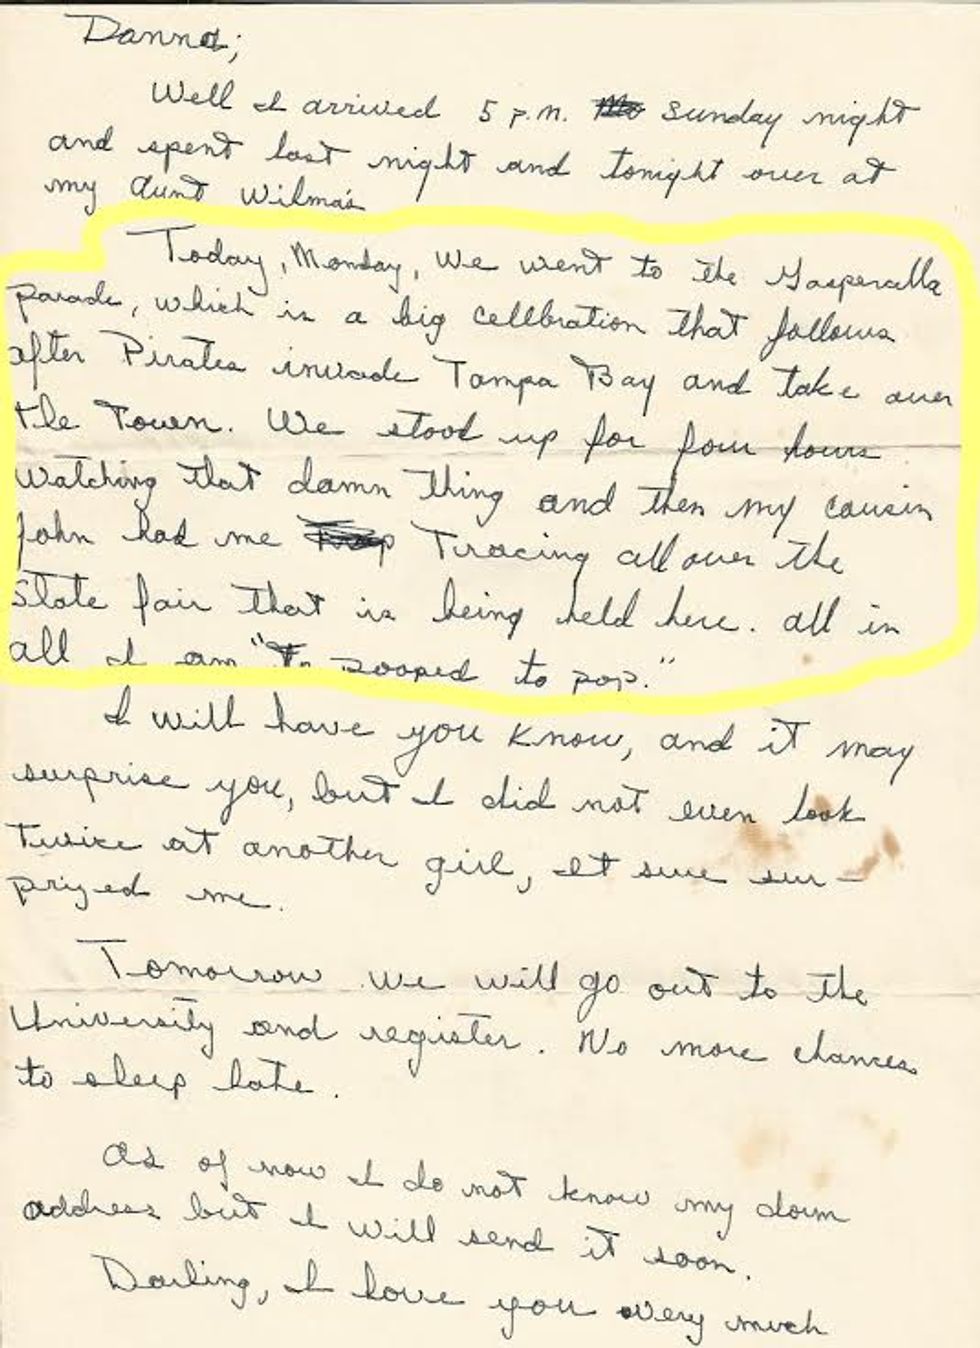 Danna;
Well I arrived 5 p.m. Sunday night
and spent last night and tonight over at
my Aunt Wilma's
Today, Monday, We went to the Gasperalla
parade, which is a big cellbration that follows
after Pirates invade Tampa Bay and take over
the Town. We stood up for four hours
Watching that damn thing and then my cousin
John had me Tracing all over the
State fair that is being held here. all in
all I am "To pooped to pop."
I will have you know, and it may
surprise you, but I did not even look
Twice at another girl, It sure sur-
prized me.
Tomorrow we will go out to the
University and register. No more chances
to sleep late.
As of now I do not know my dorm
address but I will send it soon.
Darling, I love you very much